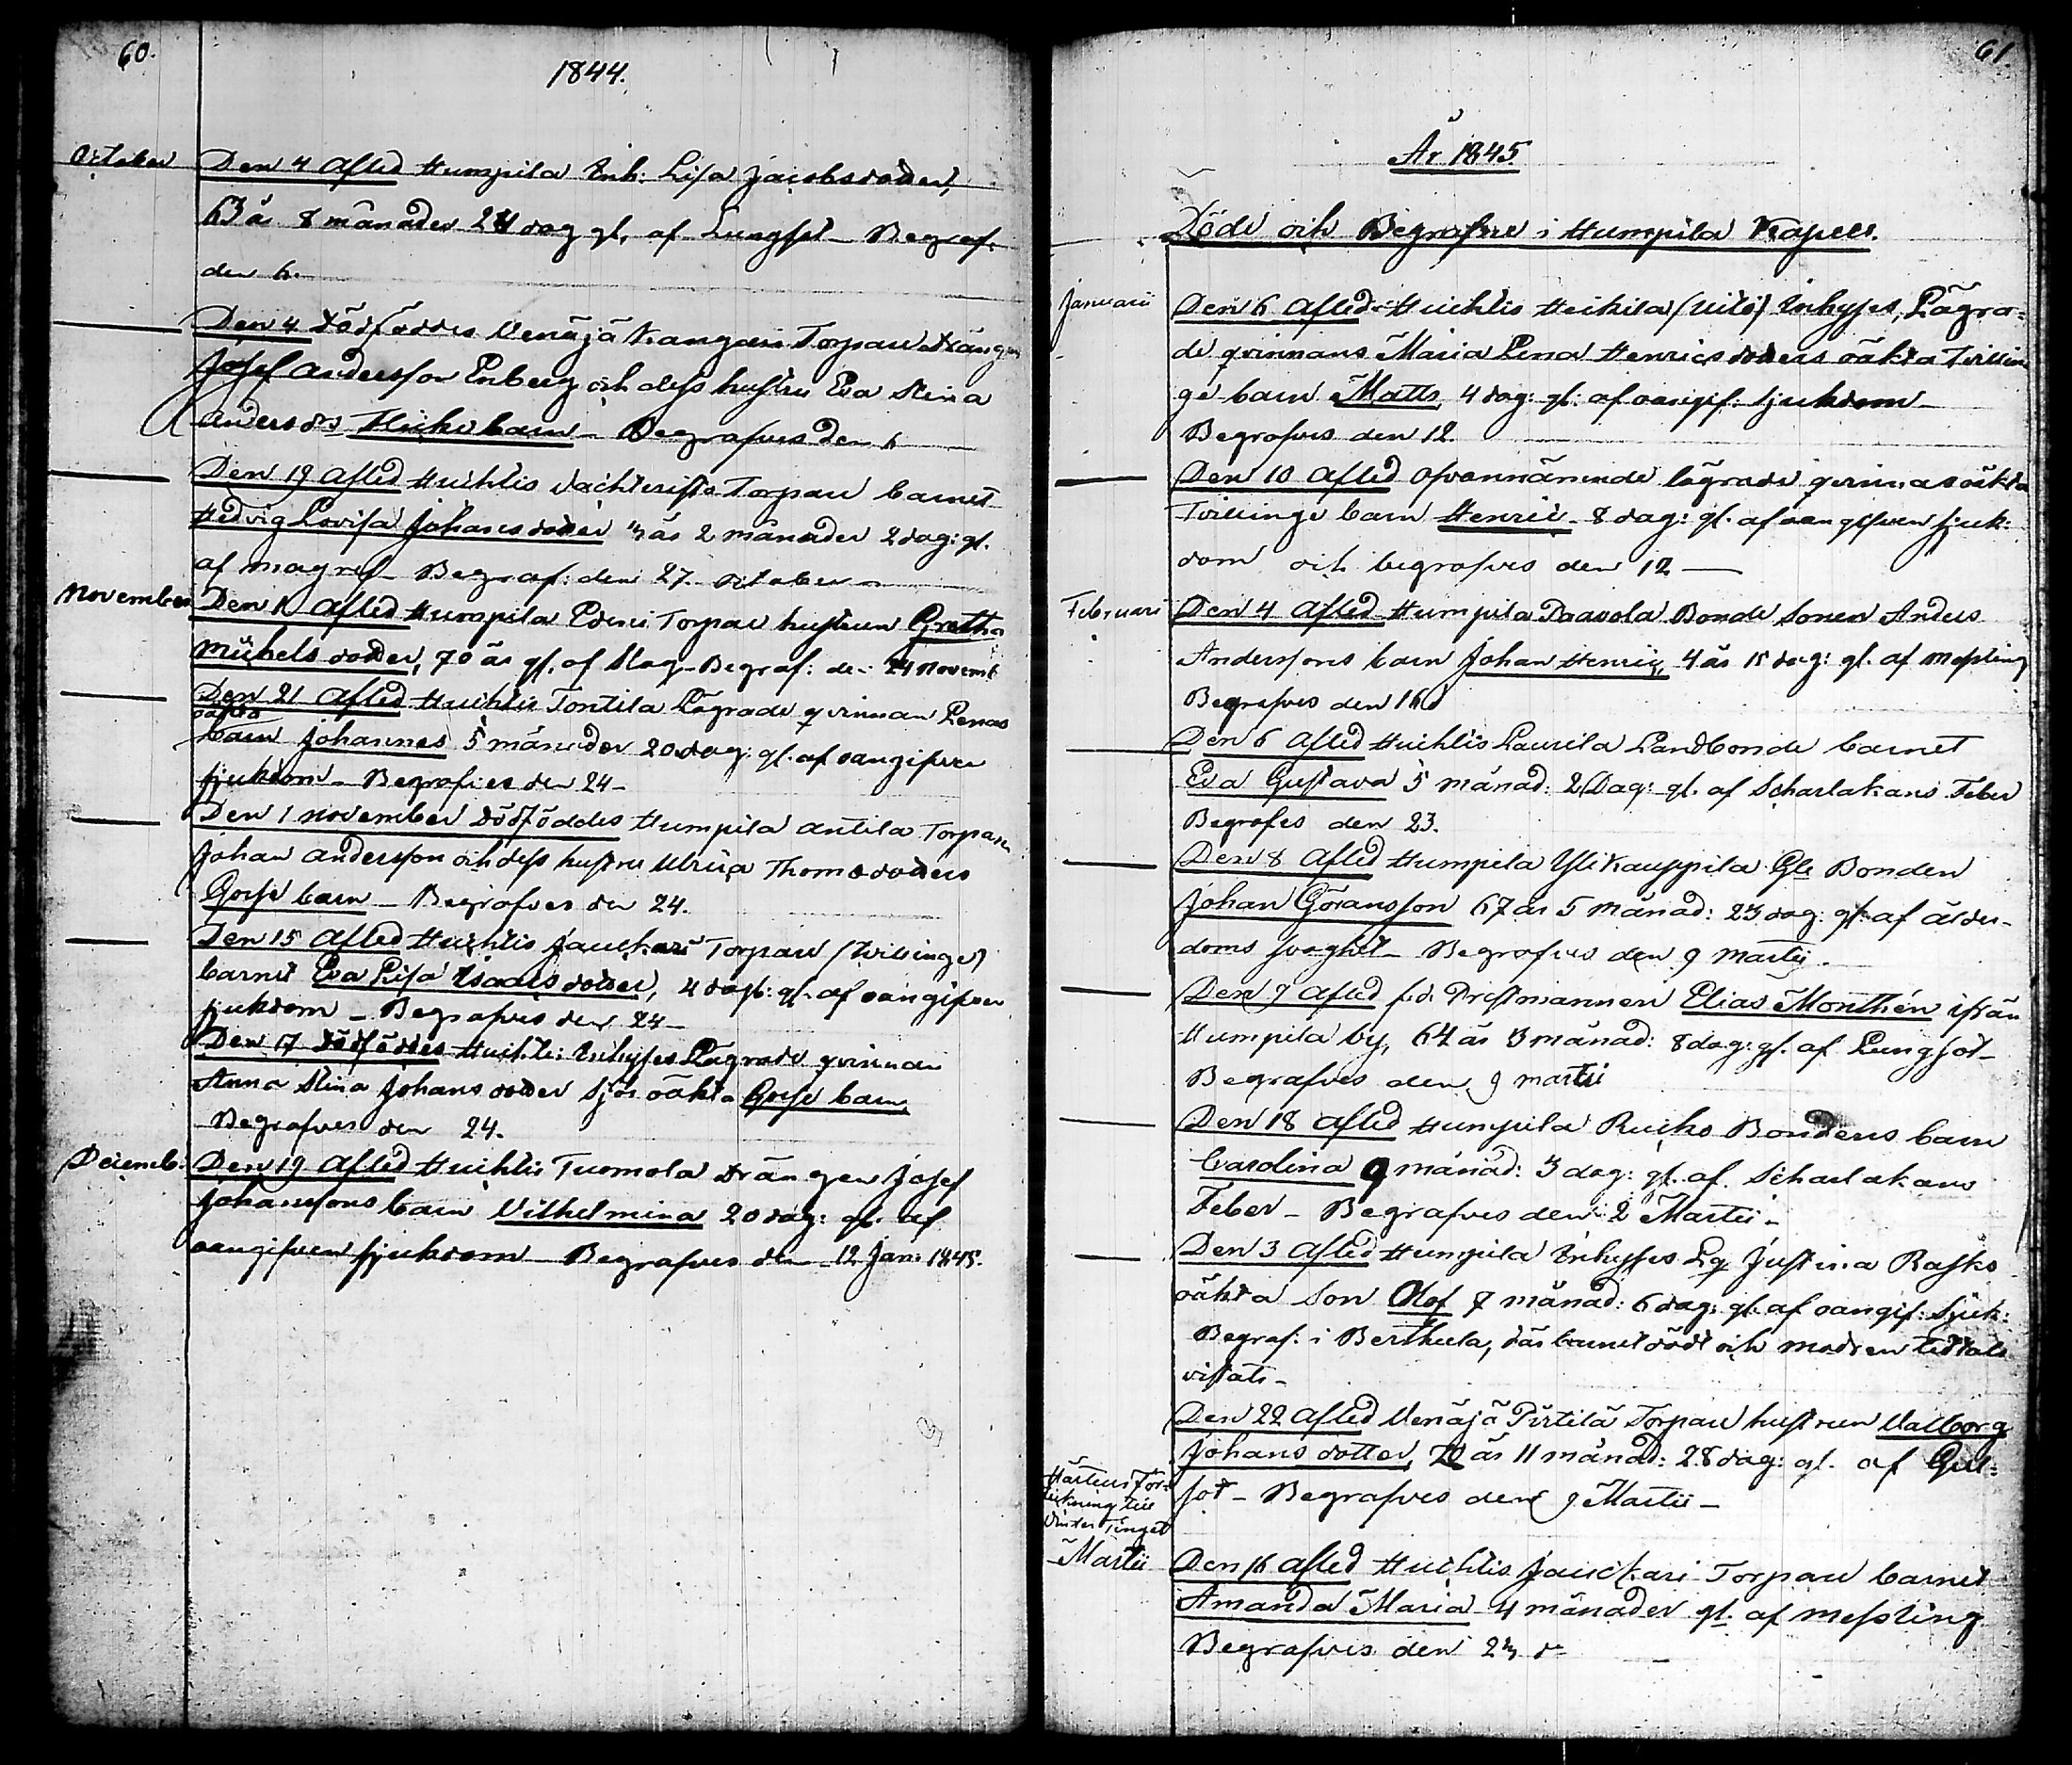 60.
1844.
October Den 4 Afled Humpila Inh: Lisa Jacobsdotter,
63 år 8 månader 24 dag gl. af Lungsot - Begraf:
den 6.
Den 4 Dödföddes Venäjä Kangari Torpare Drängen
Josef Andersson Enberg och dess hustru Eva Stina
Andersdrs Flicko barn - Begrafves den 6
Den 19 Afled Huichtis Torpare barnet
Hedvig Lovisa Johansdotter 3 år 2 månader 2 dag: gl.
af magref - Begraf: den 27. October
November Den 1 Afled Humpila Eskeri Torpare hustrun Gretha
Michelsdotter, 70 år gl. af Slag - Begraf: den 24 Novemb
Den 21 Afled Huichtis Tontila Lägrade qvinnan Lenas
oäkta
barn Johannes 5 månader 20 dag: gl. af oangifven
sjukdom - Begrafves den 24 -
Den 1 November Dödföddes Humpila Antila Torparen
Johan Andersson och dess hustru Ulrica Thomasdotters
Gosse barn - Begrafves den 24.
Den 15 Afled Huichtis Jauckari Torpare (Tvillinge)
barnet Eva Lisa Isaacsdotter, 4 dag: gl. af oangifven
sjukdom - Begrafves den 24 -
Den 17 Dödföddes Huichtis Inhyses Lägrade qvinnan
Anna Stina Johansdotter oäkta Gosse barn,
Begrafves den 24.
Decemb: Den 19 Afled Huichtis Tuomola Drängen Josef
Johanssons barn Vilhelmina 20 dag: gl. af
oangifven sjukdom - Begrafves den 12 Jan: 1845.
61.
År 1845.
Döde och Begrafne i Humpila Kapell.
Januarii Den 6 Afled Huichtis Heikila (Uito) Inhyses, Lägra-
de qvinnans Maria Lena Henricsdotters oäkta Tvillin
ge barn Matts, 4 dag: gl: af oangif: sjukdom -
Begrafves den 12.
Den 10 Afled ofvannämnde lägrade qvinnas oäkta
Tvillinge barn Henric - 8 dag: gl. af oangifven sjuk:
dom och begrafves den 12 -
Februari Den 4 Afled Humpila Paavola Bonde Sonen Anders
Anderssons barn Johan Henric, 4 år 15 dag: gl. af Messling
Begrafves den 16
Den 6 Afled Huichtis Laurila Landbonde barnet
Eva Gustava 5 månad: 2 Dag: gl. af Scharlakans Feber
Begrafes den 23.
Den 8 Afled Humpila Ylikauppila Gle Bonden
Johan Göransson 67 år 5 Månad: 23 dag: gl: af ålder-
doms svaghet - Begrafves den 9 Martii.
Den 9 Afled f.d. Prestmannen Elias Monthén ifrån
Humpila by, 64 år 3 månad: 8 dag: gl. af Lungsot -
Begrafves den 9 Martii
Den 18 Afled Humpila Ruicko Bondens barn
Carolina 9 månad: 3 dag: gl. af Scharlakans
Feber - Begrafves den 2 Martii -
Den 3 Afled Humpila Inhyses Lg Justina Rasks
oäkta Son Olof 7 månad: 6 dag: gl. af oangif: Sjuk:
Begraf: i Berthula, där barnet dödt och modren
vistats -
Den 22 Afled Venäjä Pirtilä Torpare hustrun Valborg
Johansdotter, 70 år 11 månad: 28 dag: gl. af Gul-
sot - Begrafves den 9 Martii -
Härtill För-
teckning till
Vinter Tinget
Martii Den 16 Afled Huichtis Jauckari Torpare barnet
Amanda Maria 4 månader gl. af messling
Begrafves den 23 d